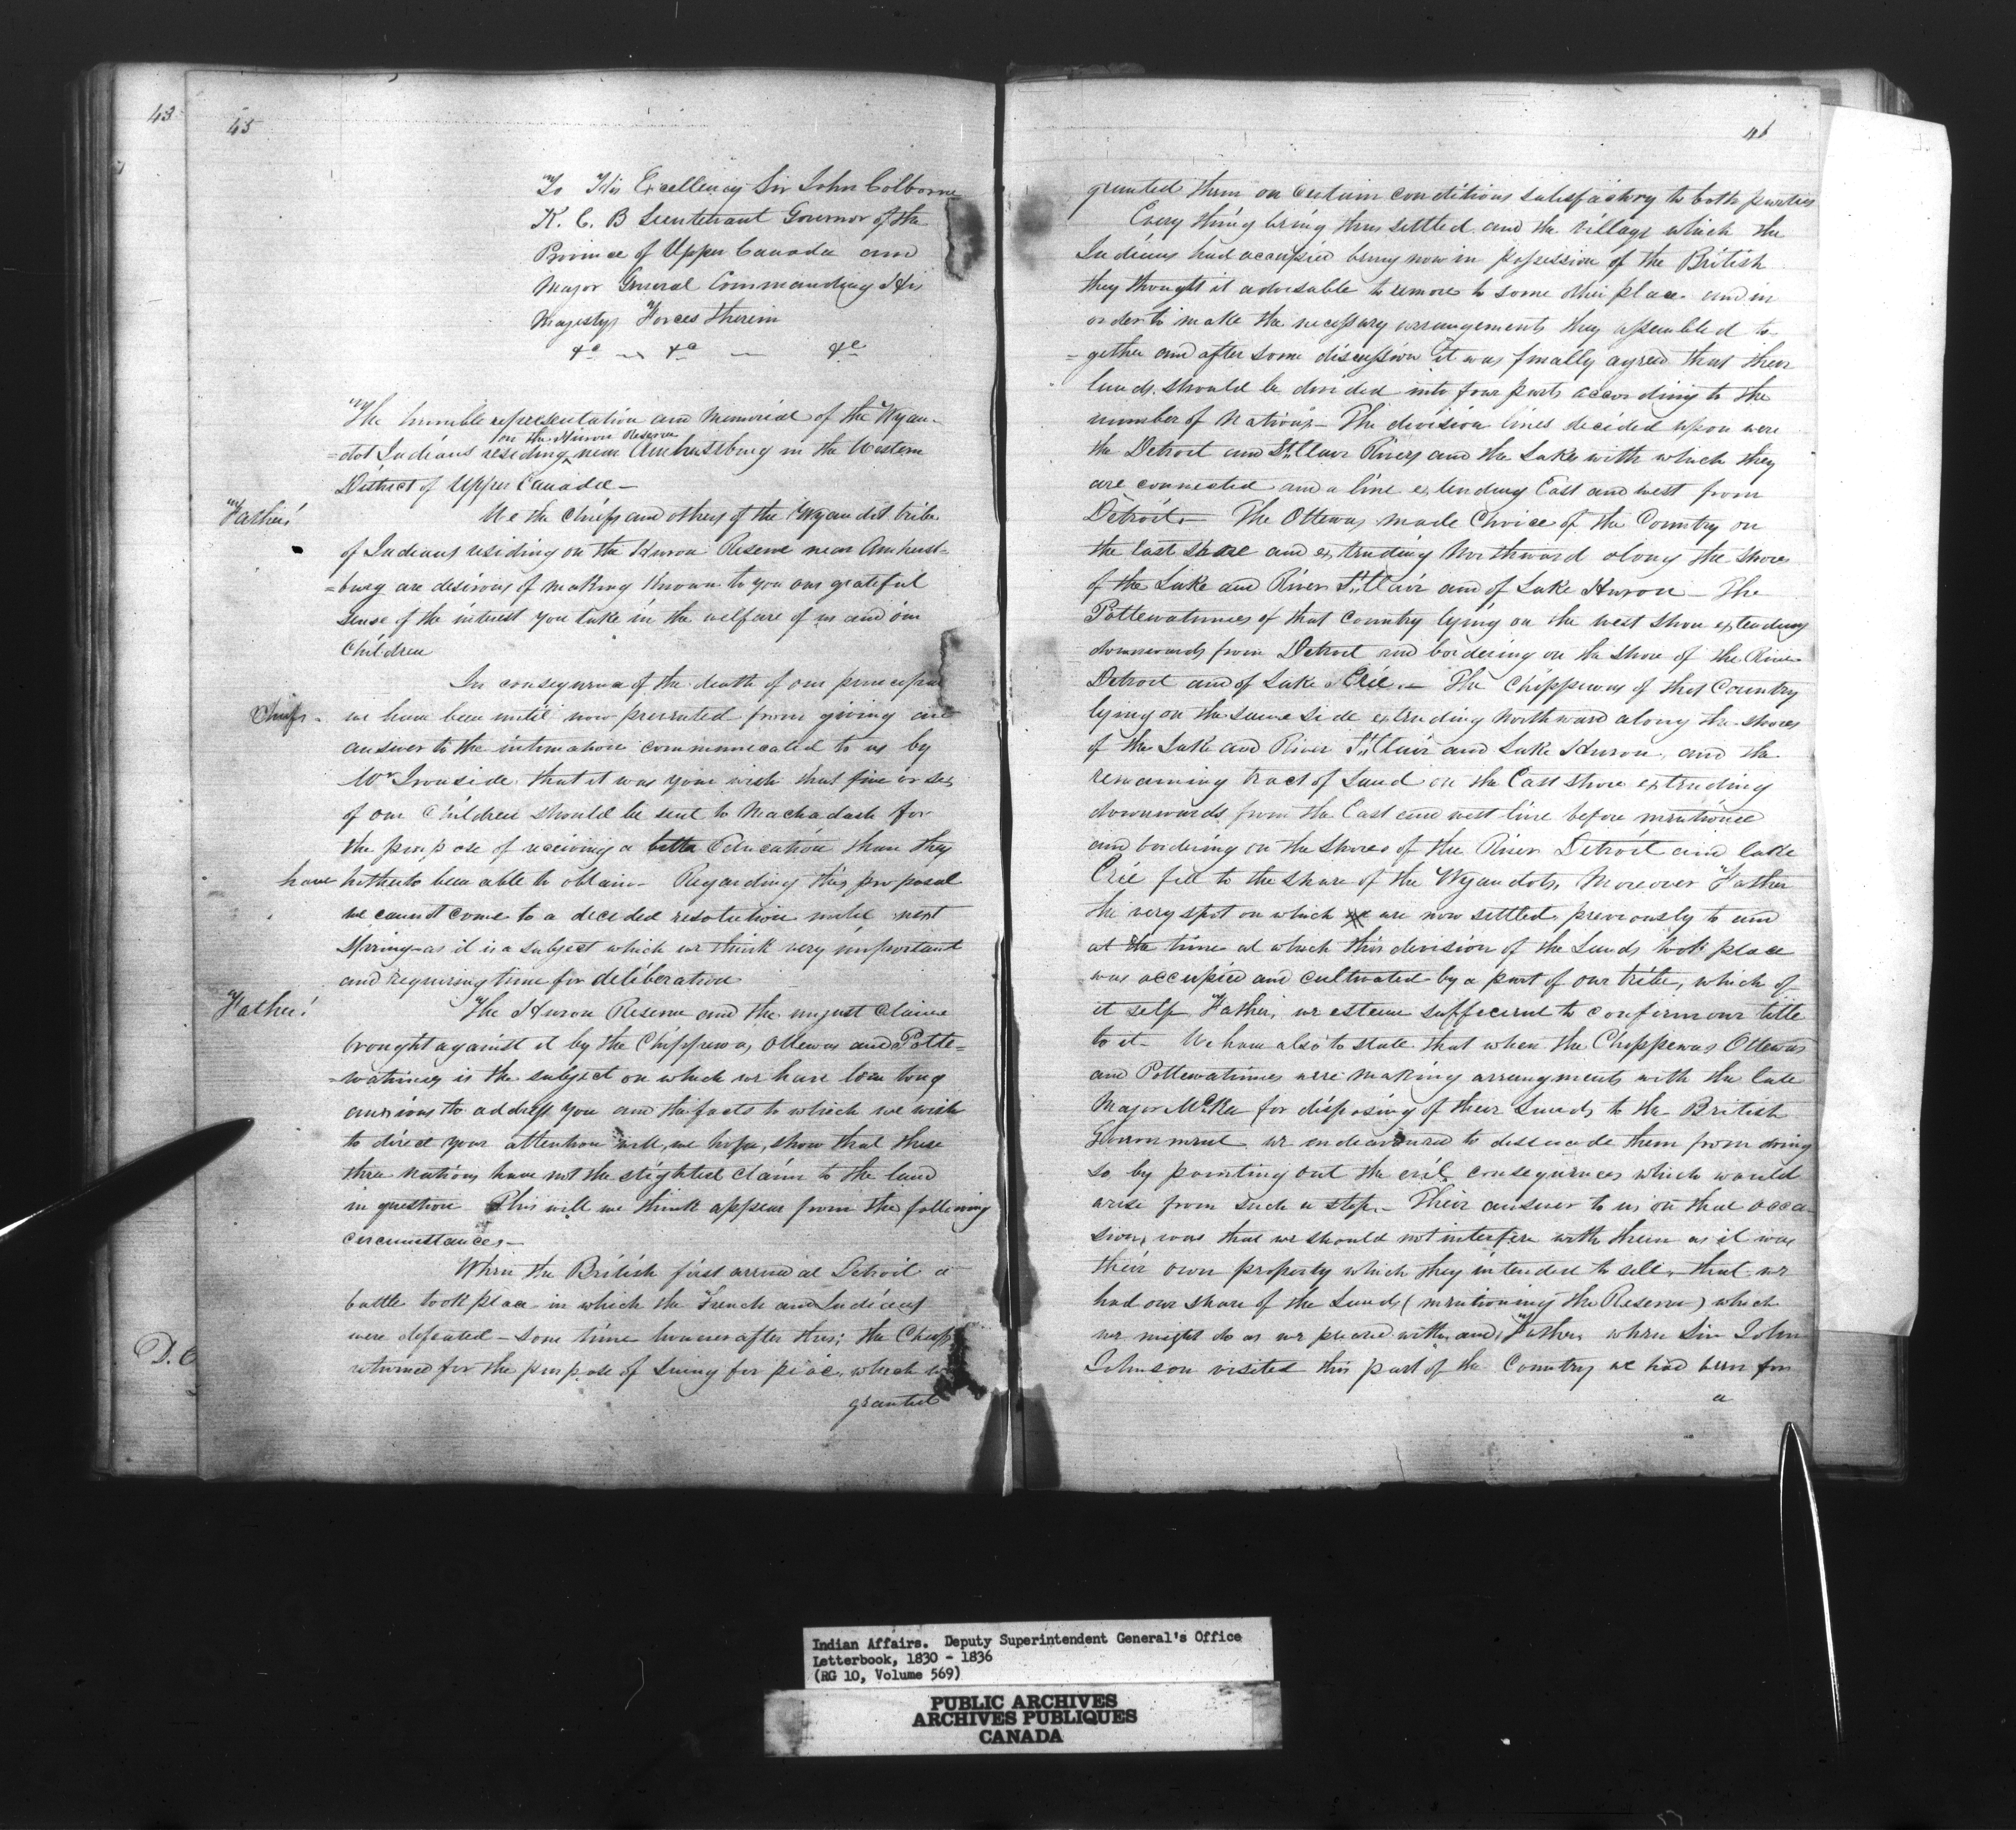 43
45
To His Excellency Sir John Colborne
K. C. B Lieutenant Governor of the
Province of Upper Canada and
Major General Commanding His
Majestys Forces therein
&c &c &c
The humble representation and Memorial of the Wyan-
on the Huron Reserve
=dot Indians residing near Amherstburg in the Western
District of Upper Canada—
Father!
We the Chiefs and others of the Wyandot tribe
of Indians residing on the Huron Reserve near Amherst-
=burg are desirous of making known to you our grateful
sense of the interest you take in the welfare of us and our
Children
In consequence of the death of our principal
Chiefs we have been until now prevented from giving an
answer to the intimation communicated to us by
Mr Ironside that it was your wish that five or six
of our Children should be sent to Machadash for
the purpose of receiving a better Education than they
have hitherto been able to obtain— Regarding this proposal
we cannot come to a decided resolution until next
Spring as it is a subject which we think very important
and requiring time for deliberation
Father!
The Huron Reserve and the unjust Claims
brought against it by the Chippewas, Ottewas and Potte=
=watimies is the subject on which we have been long
anxious to address you and the facts to which we wish
to direct your attention will, we hope, show that these
three nations have not the slightest claim to the land
in question This will we think appear from the following
circumstances—
When the British first arrived at Detroit a
battle took place in which the French and Indians
were defeated— Some time however after this; the Chiefs
returned for the purpose of Suing for peace, which
granted
D. C
46
granted them on certain conditions satisfactory to both parties
Every thing being thus settled and the village which the
Indians had occupied being now in possession of the British
they thought it advisable to remove to some other place and in
order to make the necessary arrangements they assembled to-
=gether and after some discussion it was finally agreed that their
lands should be divided into four parts according to the
number of Nations— The division lines decided upon were
the Detroit and St. Clair Rivers and the Lakes with which they
are connected and a line extending East and west from
Detroit— The Ottewas made Choice of the Country on
the East Shore and extending Northward along the Shores
of the Lake and River St. Clair and of Lake Huron— The
Pottewatimies of that Country lying on the west Shore extending
downwards from Detroit and bordering on the shore of the River
Detroit and of Lake Erie.— The Chippewas of that Country
lying on the same side extending Northward along the shores
of the Lake and River St. Clair and Lake Huron, and the
remaining tract of Land on the East Shore extending
downwards from the East and west line before mentioned
and bordering on the Shores of the River Detroit and Lake
Erie fell to the share of the Wyandots, Moreover Father
the very spot on which we are now settled, previously to and
at the time at which this division of the Lands took place
was occupied and cultivated by a part of our tribe, which of
it self Father, we esteem sufficient to confirm our title
to it— We have also to state that when the Chippewas Ottewas
and Pottewatimies were making arrangments with the late
Major McKee for disposing of their Lands to the British
Government we endeavoured to dissuade them from doing
so by pointing out the evil consequences which would
arise from such a step.— Their answer to us on that occa-
sion, was that we should not interfere with them as it was
their own property which they intended to sell, that we
had our share of the Lands (mentioning the Reserve) which
we might do as we pleased with, and, Father, when Sir John
Johnson visited this part of the Country we had been for
a
Indian Affairs. Deputy Superintendent General's Office
Letterbook, 1830 - 1836
(RG 10, Volume 569)
PUBLIC ARCHIVES
ARCHIVES PUBLIQUES
CANADA